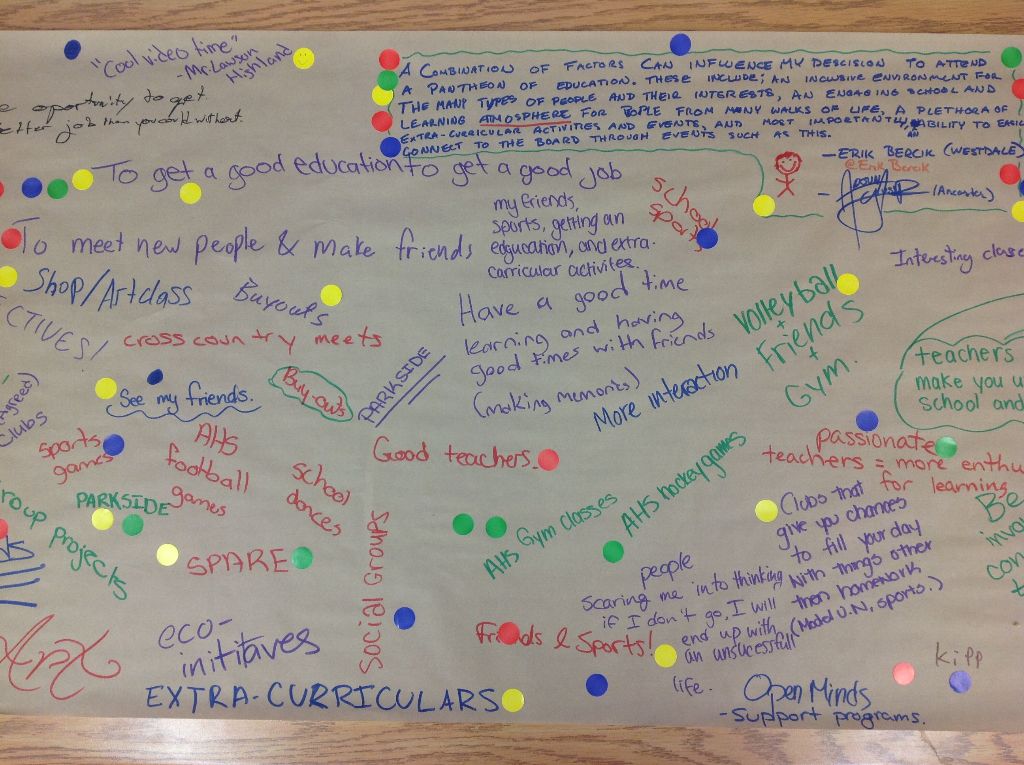 "Cool video time"
- Mr. Lawson
Highland
oportunity to get
job than you could without.
A COMBINATION OF FACTORS CAN INFLUENCE MY DESCISION TO ATTEND
A PANTHEON OF EDUCATION. THESE INCLUDE; AN INCLUSIVE ENVIRONMENT FOR
THE MANY TYPES OF PEOPLE AND THEIR INTERESTS, AN ENGAGING SCHOOL AND
LEARNING ATMOSPHERE FOR PEOPLE FROM MANY WALKS OF LIFE, A PLETHORA OF
EXTRA-CURRICULAR ACTIVITIES AND EVENTS, AND MOST IMPORTANTLY, AN ABILITY TO EASIL
CONNECT TO THE BOARD THROUGH EVENTS SUCH AS THIS.
- ERIK BERCIK (WESTDALE)
@Erik Bercik
(Ancaster)
To get a good education to get a good job
my friends,
sports, getting an
edgucation, and extra-
carricular activites.
school
sports
To meet new people & make friends
Interesting classe
Shop/Artclass
Buyouts
Have a good time
learning and having
good times with friends
(making memories)
Volleyball
+
Friends
+
Gym.
CTIVES/
cross country meets
PARKSIDE
teachers
make you u
school and
See my friends.
Buy-outs
More interaction
Agreed)
Clubs
sports
games
AHS
football
games
school
dances
Good teachers.
AHS hockey games
passionate
teachers = more enthu
for learning
PARKSIDE
roup projects
SPARE
Social Groups
AHS Gym classes
Clubs that
give you chances
to fill your day
with things other
then homework
(Model U.N, sports.)
Be
invo
con
t
people
scaring me into thinking
if I don't go, I will
end up with
an unsucessfull
life.
eco-
initiaves
Friends & Sports!
EXTRA-CURRICULARS
Open Minds
- Support programs.
Kipp